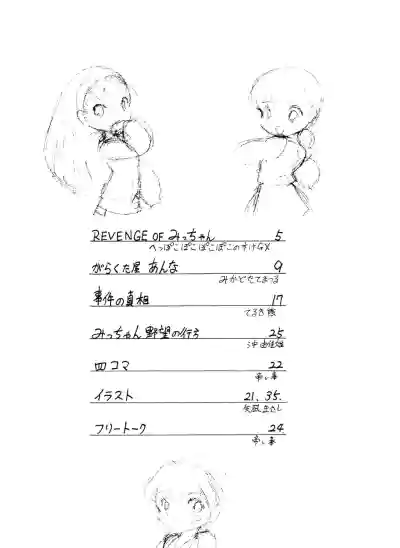 REVENGE OF みっちゃん 5
へっぽこぽこぽこぽこのすけGX
がらくた屋 あんな 9
みかどたてまつる
事件の真相 17
てるき熊
みっちゃん 野望の行方 25
四コマ 22
イラスト 21, 35.
フリートーク 24